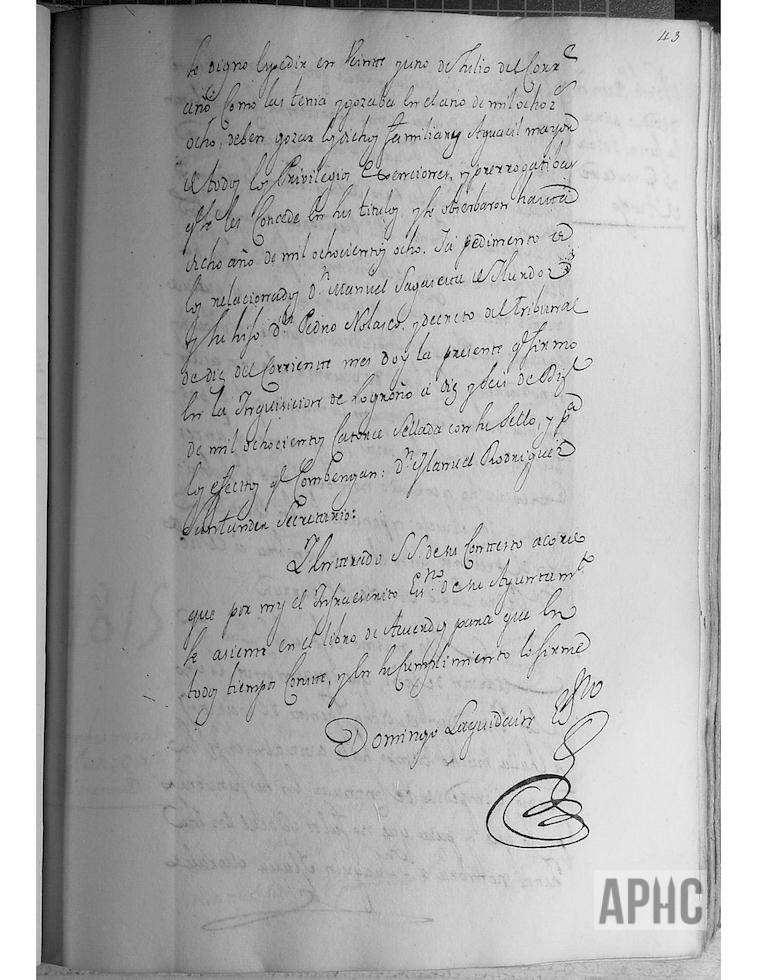 43
se digno expedir en Veinte y uno de Julio del Corr.e
año, como las tenia y gozaba en el año de mil ochoz.s
ocho, deben gozar los dichos familiares Aguacil mayor
de todos los Privilegios Exenciones, y prerrogatibas
q.e se les Concede en sus titulos, y se obserbaron hasta
dicho año de mil ochocientos ocho. Y a pedimento de
los relacionados D.n Manuel Sagaseta de Ylurdoz
y su hijo D.n Pedro Nolasco, y decreto del tribunal
de diez del Corriente mes doy la presente q.e firmo
en la Inquisicion de Logroño a diez y seis de Diz.e
de mil ochocientos Catorce Sellada con su Sello, y p.a
los efectos q.e Combengan: D.n Manuel Rodriguez
Santander Secretario:
Y Enterado S.S. de su Contesto acordo
que por my el Infraescrito Es.no de su Ayuntam.to
se asiente en el libro de Acuerdos para que en
todos tiempos Conste, y en su Cumplimiento lo firmé
Domingo Laguidain Es.no
APHC